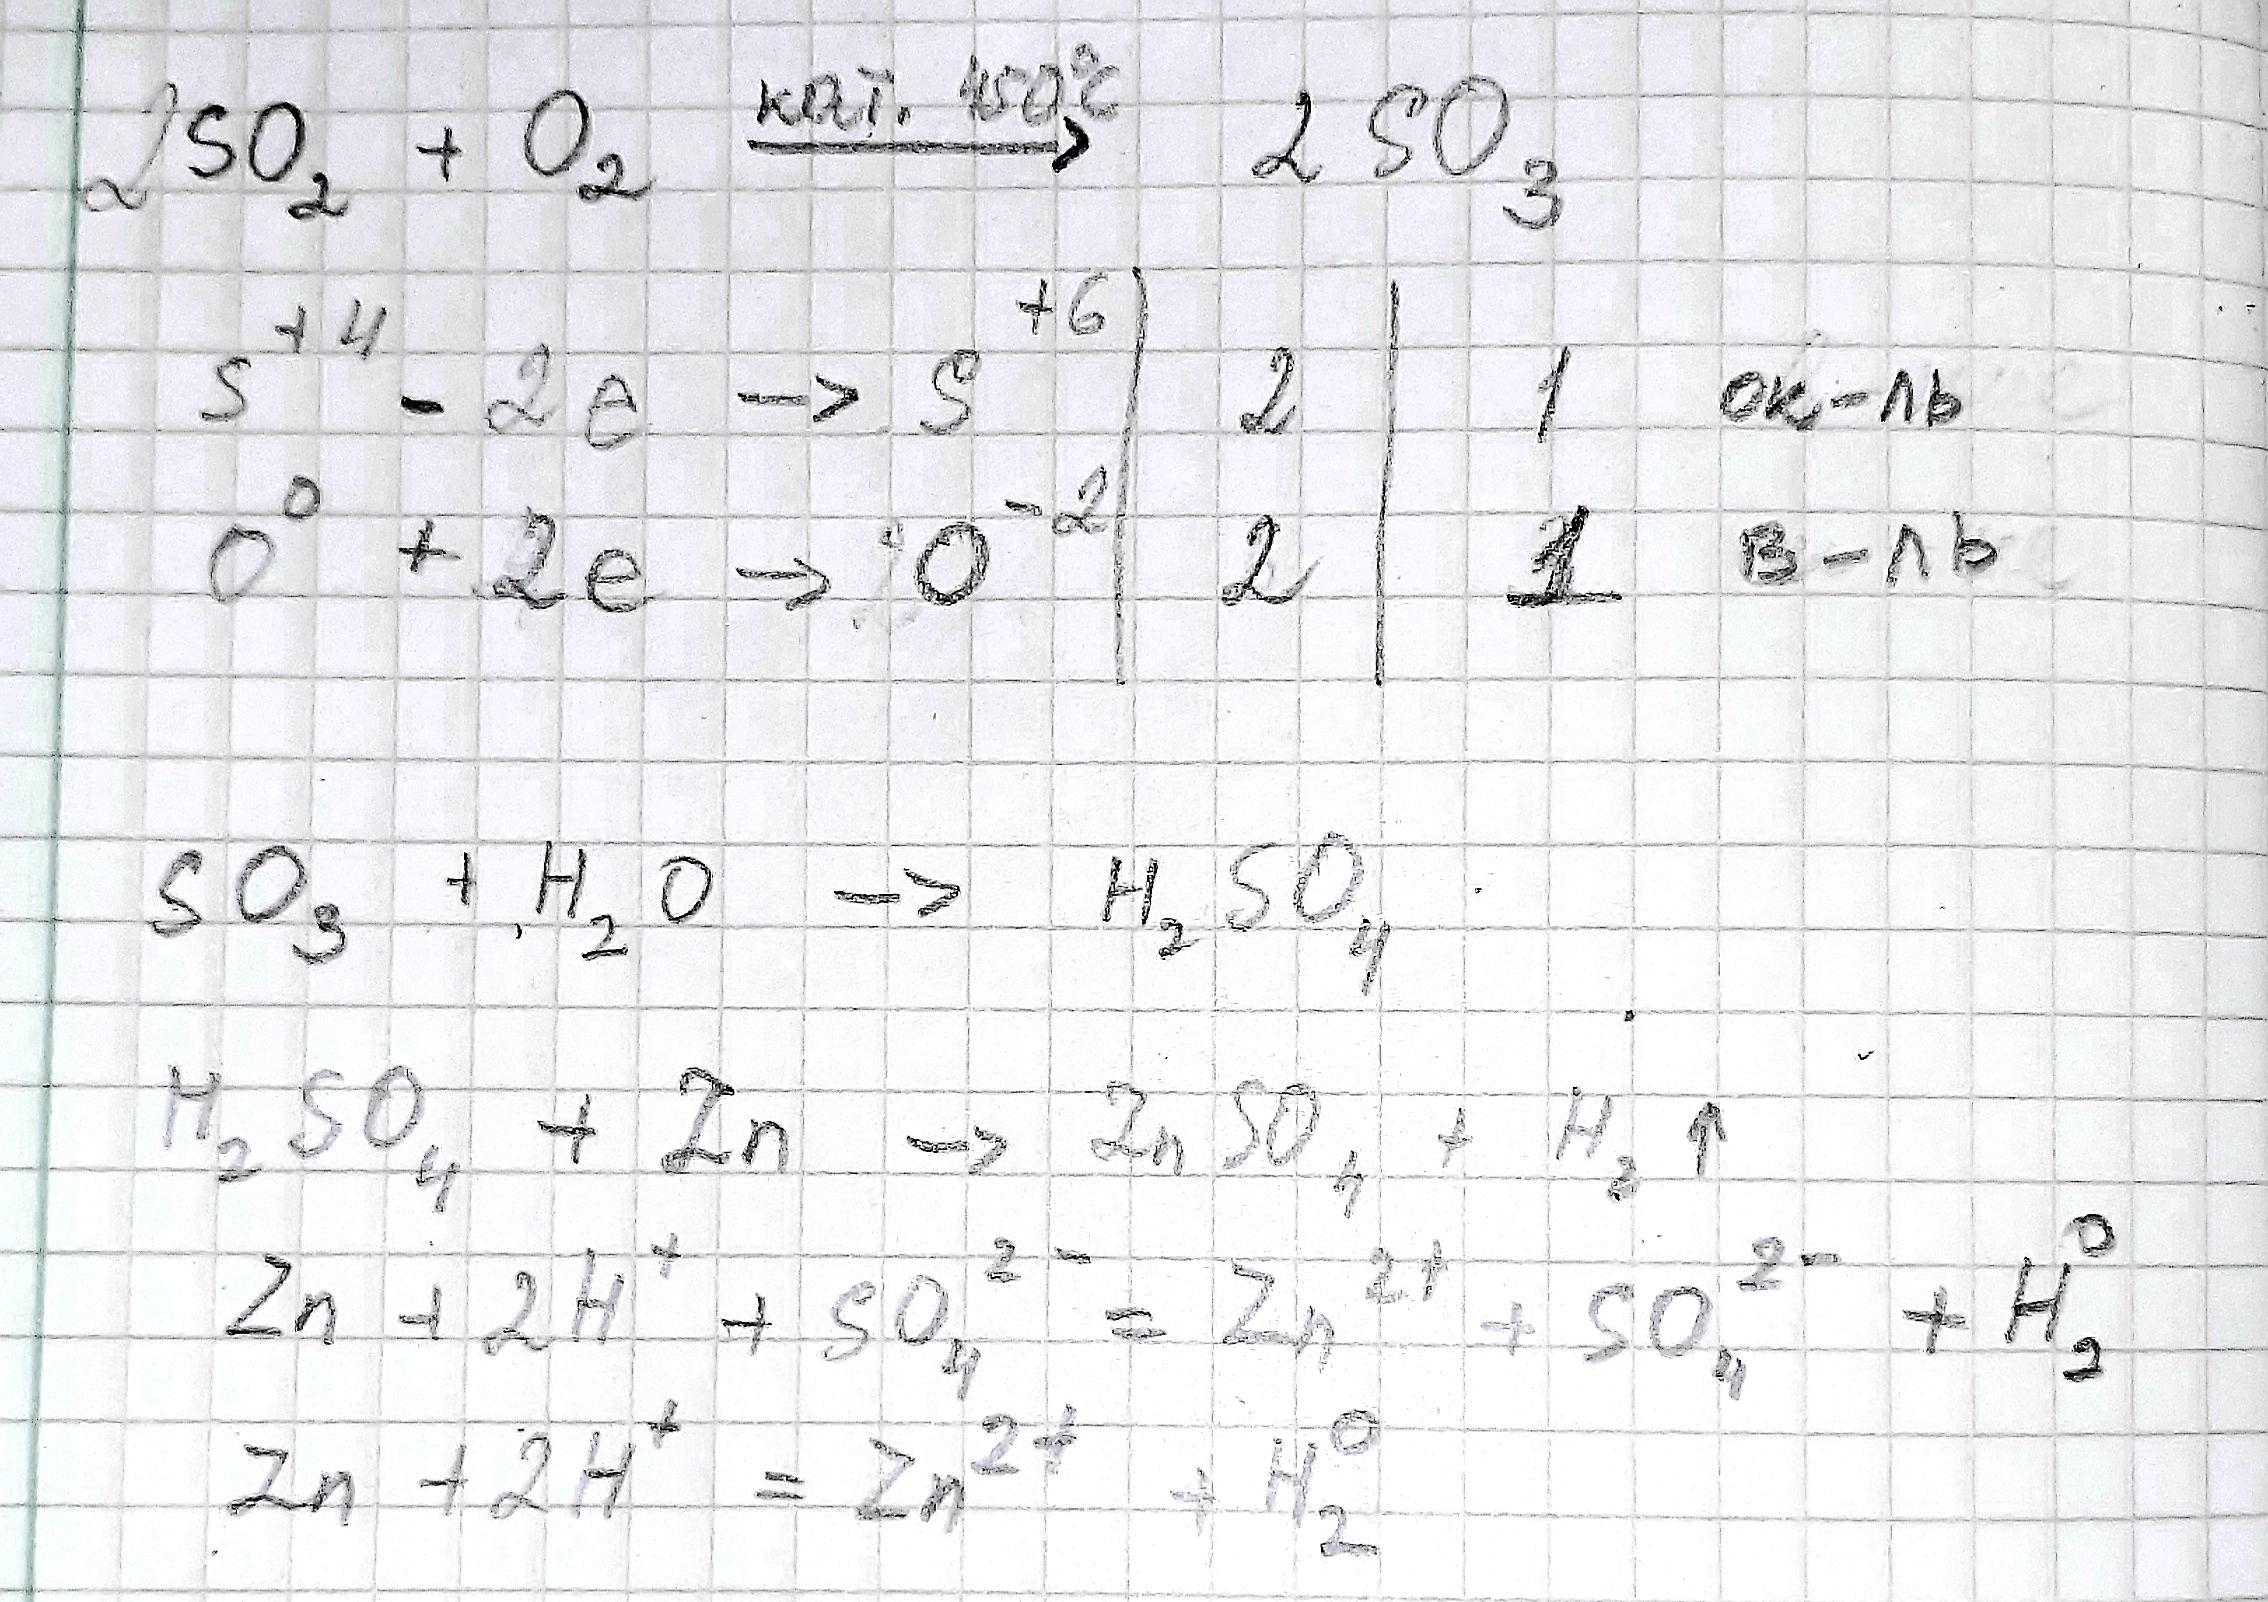 2SO₂ + O₂ кат. 450°C → 2SO₃
S⁺⁴ - 2e -> S⁺⁶ | 2 | 1 ок-ль
O⁰ + 2e -> O⁻² | 2 | 1 в-ль
SO₃ + H₂O -> H₂SO₄
H₂SO₄ + Zn -> ZnSO₄ + H₂↑
Zn + 2H⁺ + SO₄²⁻ = Zn²⁺ + SO₄²⁻ + H₂⁰
Zn + 2H⁺ = Zn²⁺ + H₂⁰